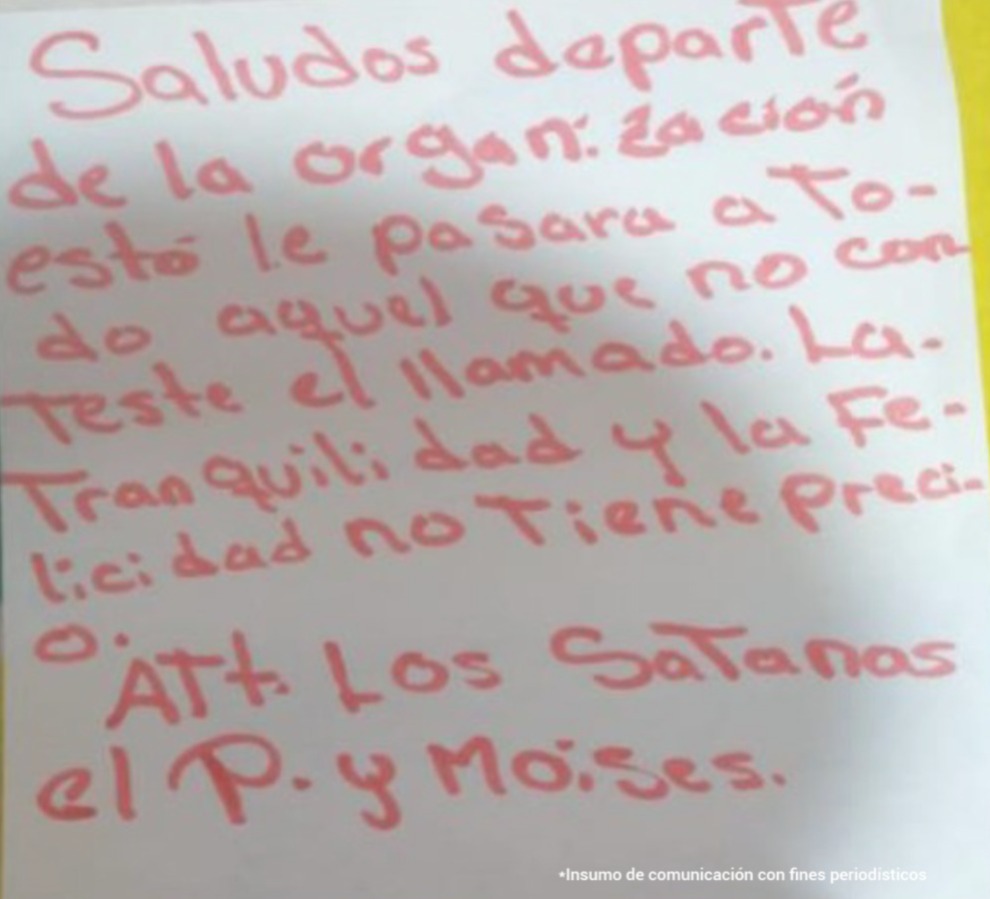 Saludos departe
de la organización
estó le pasara a To-
do aquel que no con
Teste el llamado. La-
Tranquilidad y la Fe-
licidad no Tiene preci-
o.
ATt. Los Satanas
el P. y Moises.
*Insumo de comunicación con fines periodísticos